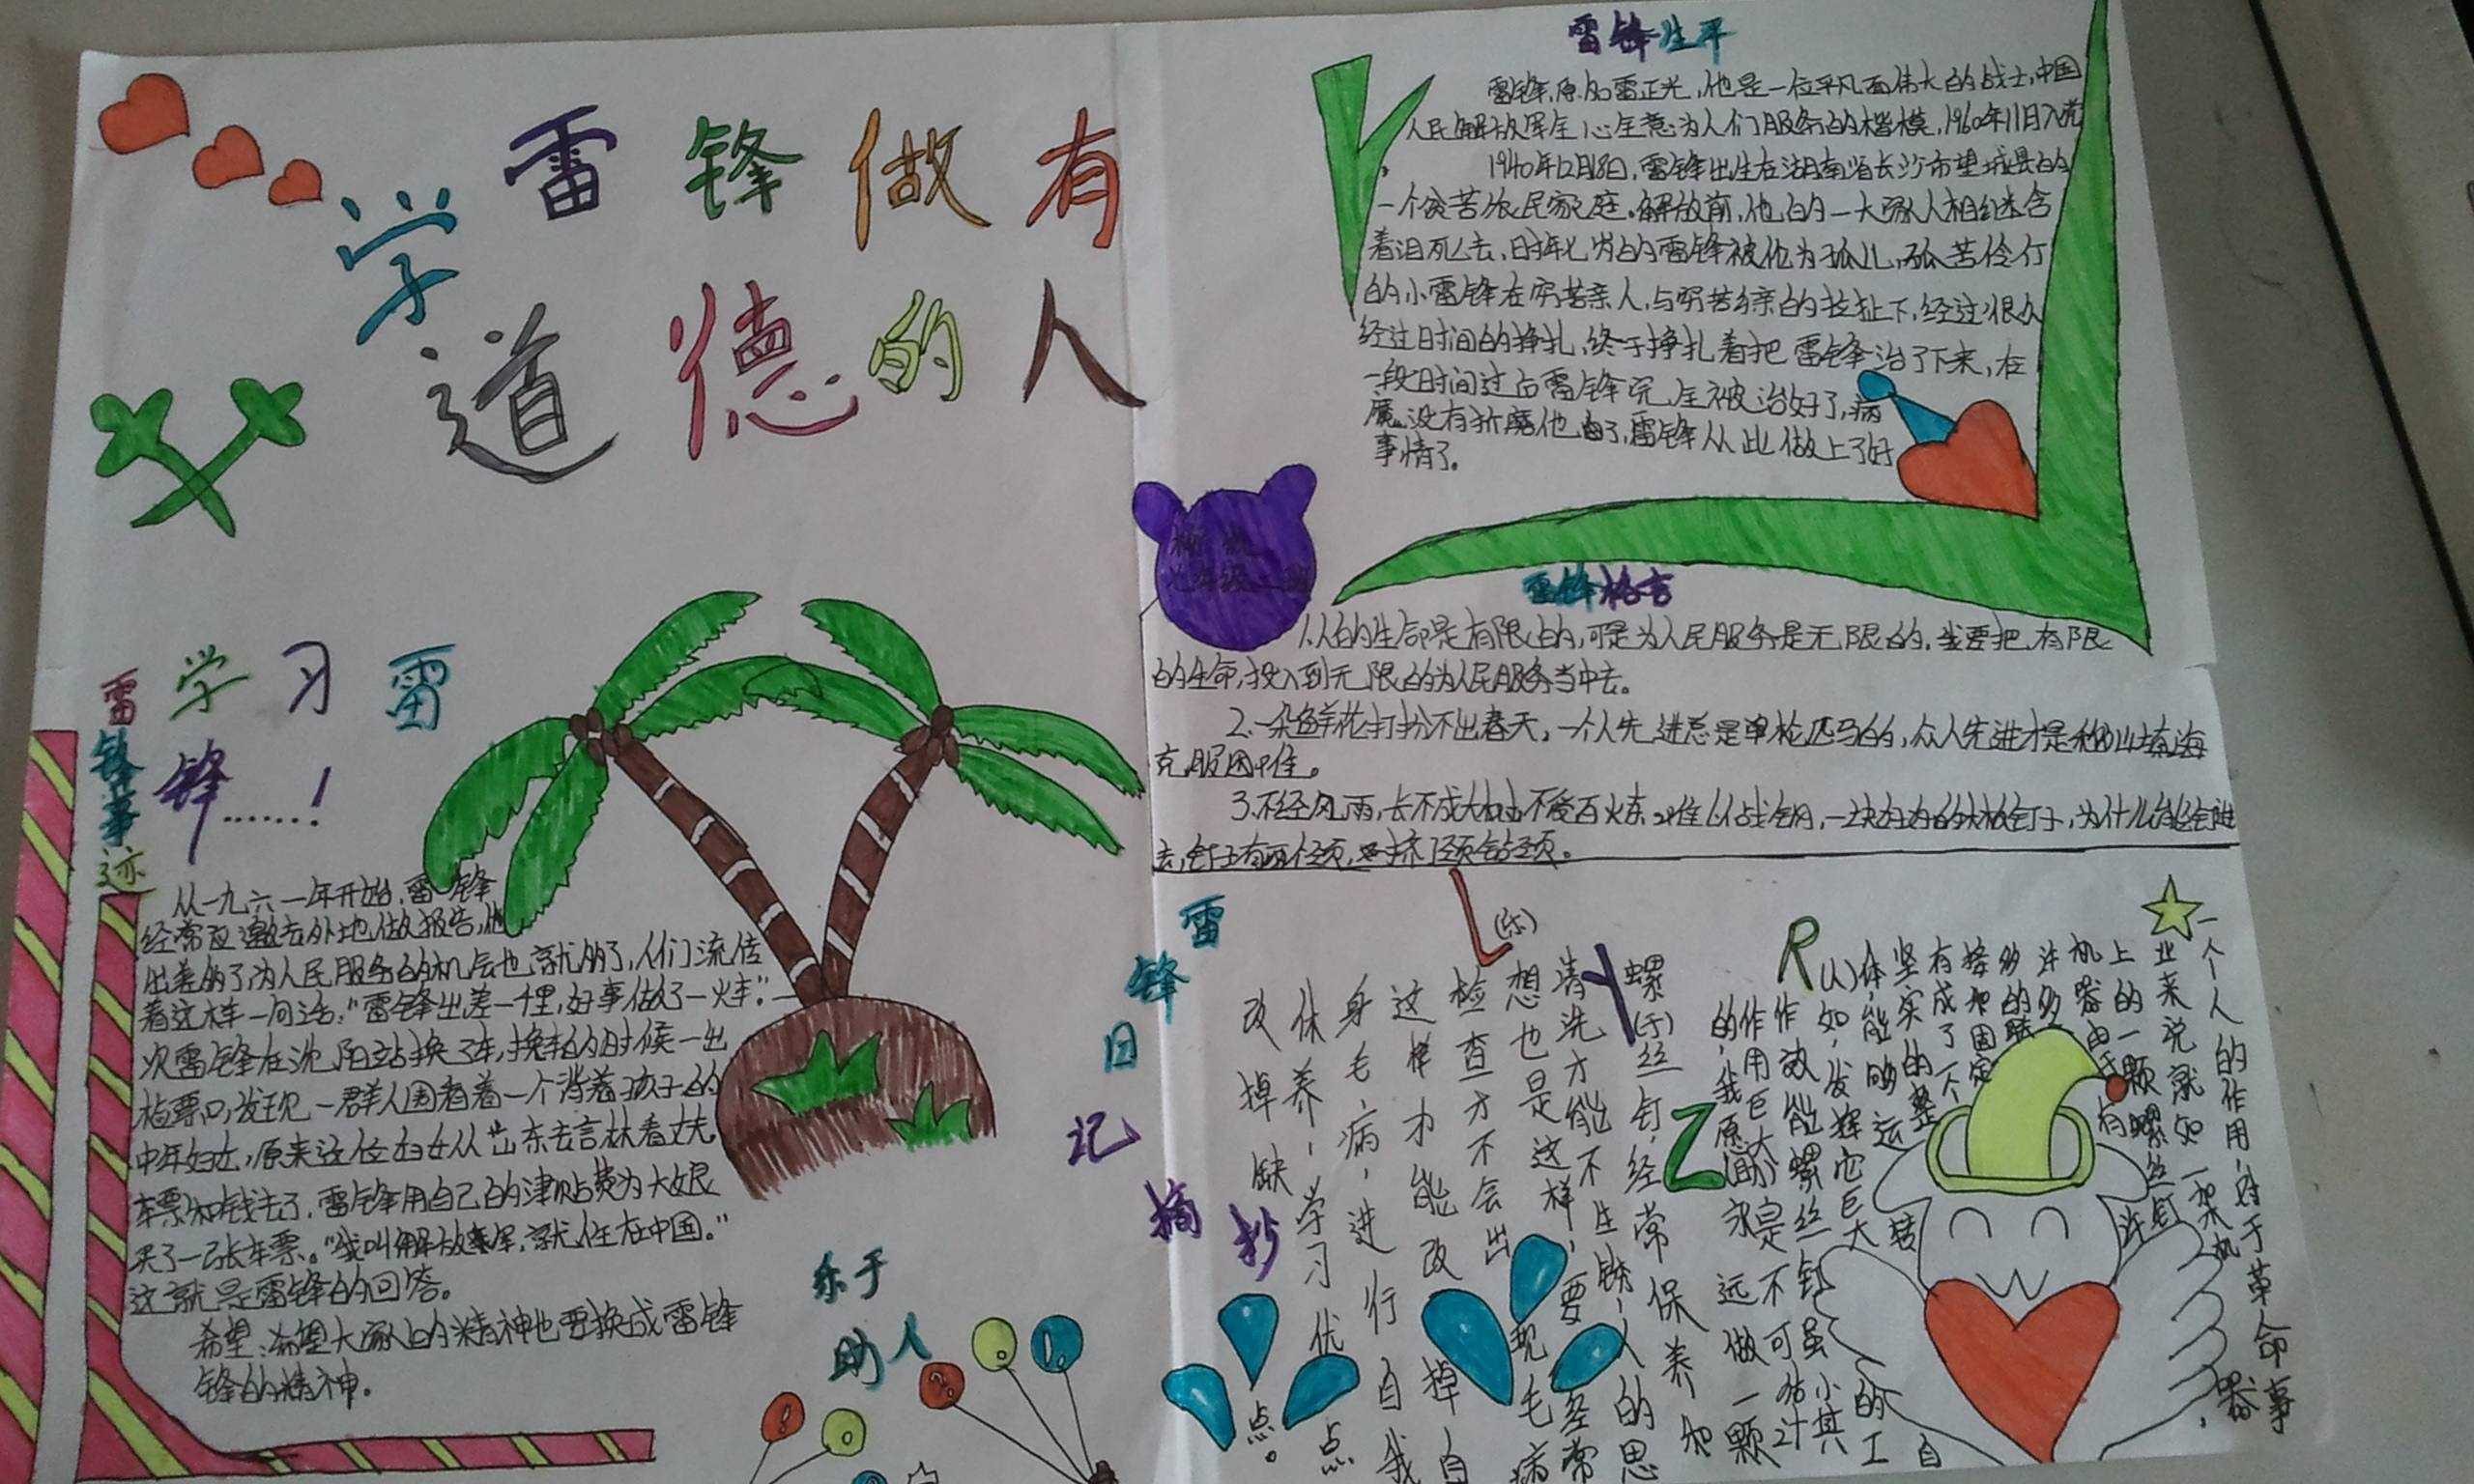 学雷锋做有
道德的人
学习雷
锋……!
雷锋事迹
从一九六一年开始,雷锋
经常应邀去外地做报告,他
出差的了,为人民服务的机会也就的了,人们流传
着这样一句话:"雷锋出差一千里,好事做了一火车。"一
次雷锋在沈阳站换了车,换车的时候一出
检票口,发现一群人围看着一个背着孩子的
中年妇女,原来这位妇女从山东去吉林看丈夫
车票和钱丢了,雷锋用自己的津贴费为大娘
买了一张车票。"我叫解放军,就住在中国。"
这就是雷锋的回答。
希望:希望大家的精神也要换成雷锋
锋的精神。
乐于
助人
雷锋生平
雷锋,原名雷正光,他是一位平凡而伟大的战士,中国
人民解放军全心全意为人们服务的楷模,1960年11日入党
1940年12月18日,雷锋出生在湖南省长沙市望城县的
一个贫苦农民家庭。解放前,他的一大家人相继含
着泪死去,时年七岁的雷锋被伦为孤儿,孤苦伶仃
的小雷锋在穷苦亲人,与穷苦乡亲的拉扯下,经过很久
经过时间的挣扎,终于挣扎着把雷锋治了下来,在
一段时间过后雷锋完全被治好了,病
魔没有折磨他了,雷锋从此做上了好
事情了。
雷锋格言
1.人的生命是有限的,可是为人民服务是无限的,我要把有限
的生命,投入到无限的为人民服务当中去。
2.一朵鲜花打扮不出春天,一个人先进总是单枪匹马的,众人先进才是移山填海
克服困难。
3.不经风雨,长不成大树,不受百火东,难以战钢,一块好好的大板钉子,为什么能钻进
去,钉子有两个劲,挤劲钻劲。
雷锋日记摘抄
R
L(乐)
Y(于)
Z(助)
一个人的作用,对于革命事
业来说就如一架机器
上的一颗螺丝钉
机器由于有
许多许
多的
接和固定
有成了一个
坚实的整
体,能够运转
(人)如,发挥它巨大的工
作效能螺丝钉虽小其
作用巨大是不可估计
的,我愿永远做一颗
螺丝钉,经常保养和
清洗才能不生锈,人的思
想也是这样,要经常
检查才不会出现毛病
这样才能改掉自
身毛病,进行自我
休养,学习优点
改掉缺点。